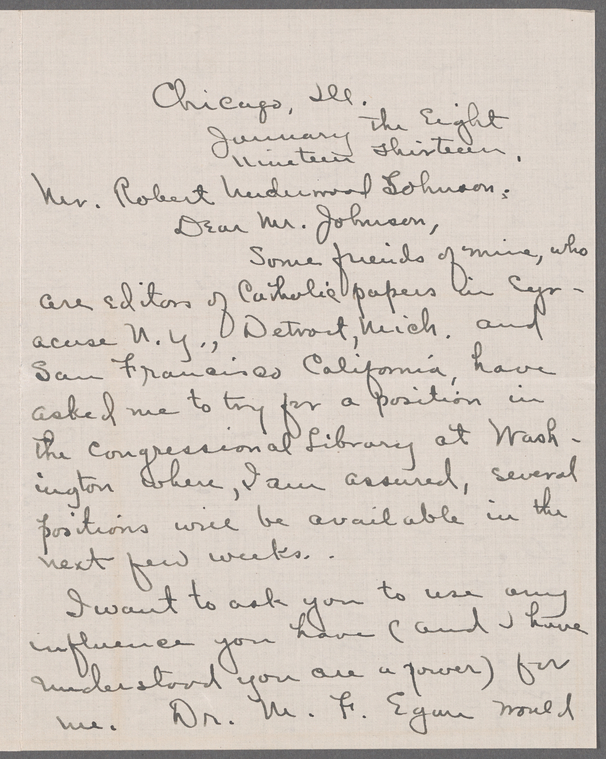 Chicago, Ill.
January the Eight
Nineteen Thirteen.
Mr. Robert Underwood Johnson:
Dear Mr. Johnson,
Some friends of mine, who
are editors of Catholic papers in Syr-
acuse N.Y., Detroit, Mich. and
San Francisco California, have
asked me to try for a position in
the Congressional Library at Wash-
ington where, I am assured, several
positions will be available in the
next few weeks.
I want to ask you to use any
influence you have (and I have
understood you are a power) for
me. Dr. M. F. Egan would